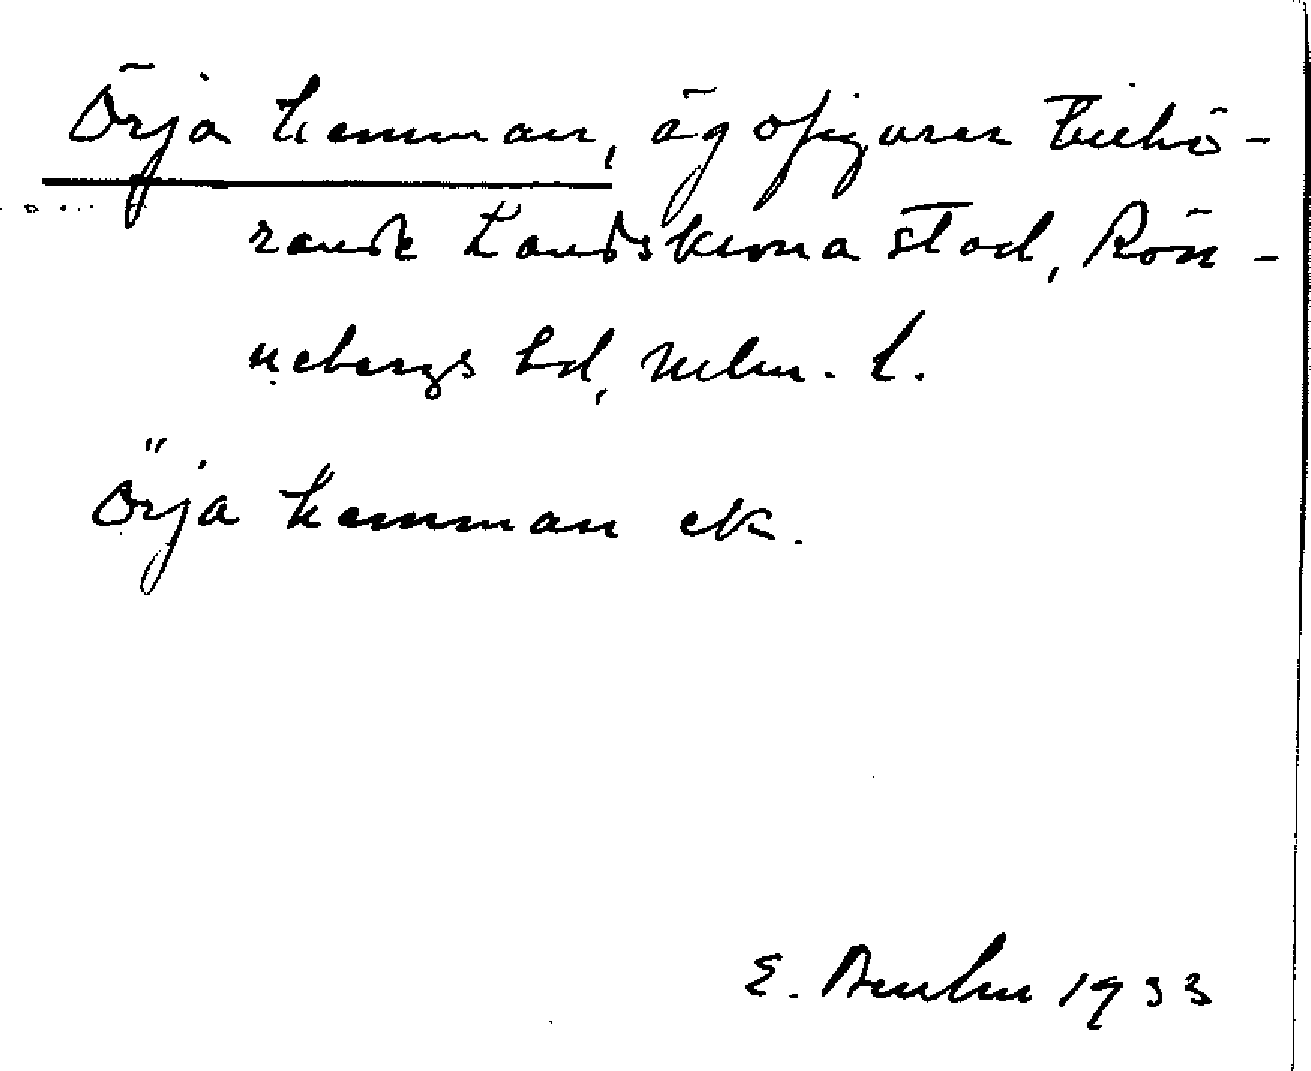 Örja hemman, ägofigurer tillhö-
rande Landskrona stad, Rön-
nebergs hd, Malm. l.
Örja hemman ek.
E. 1933